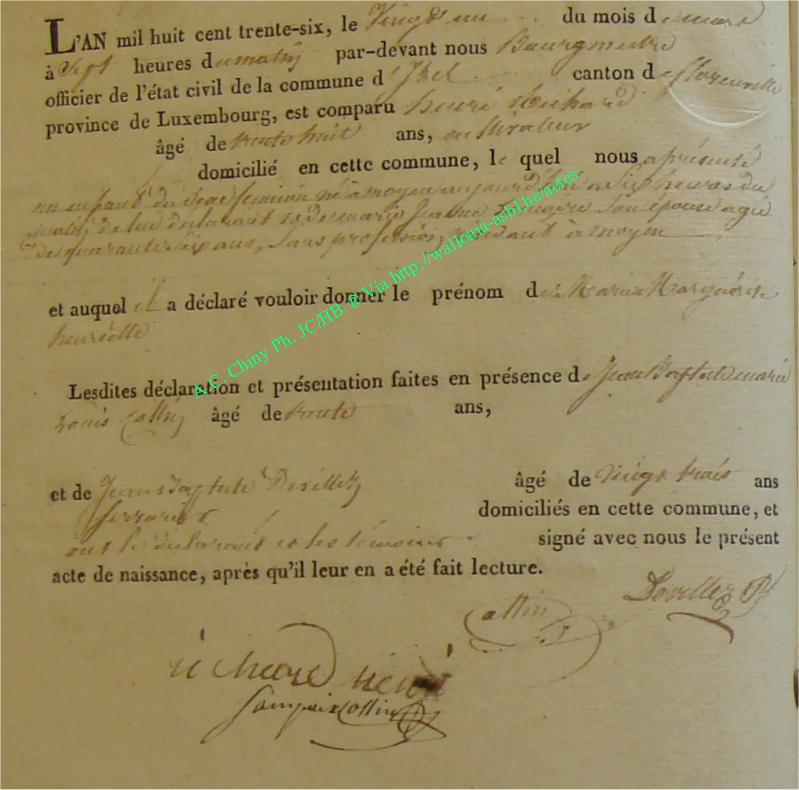 L'AN mil huit cent trente-six, le Vingt un du mois de mars
à Sept heures du matin par-devant nous Bourgmestre
officier de l'état civil de la commune d'Izel canton de florenville
province de Luxembourg, est comparu henri Richard
âgé de trente huit ans, cultivateur
domicilié en cette commune, le quel nous a présenté
un enfant du Sexe feminin né à moyen aujourd'hui a Six heures du
matin de lui déclarant et de marie Jeanne son épouse agée
de quarante Six ans, Sans profession, à moyen
et auquel il a déclaré vouloir donner le prénom de Marie Marguerite
henriette
Lesdites déclaration et présentation faites en présence de Jean Baptiste marie
Louis Collin âgé de trente ans,
et de Jean Baptiste Devillez âgé de vingt trois ans
Serrurier domiciliés en cette commune, et
ont le déclarant et les témoins signé avec nous le présent
acte de naissance, après qu'il leur en a été fait lecture.
Devillez
Collin
richard henri
Sampaix Collin
A.G. Chiny Ph. JC/HB ® Via http://wallonia-asbl.be/actes